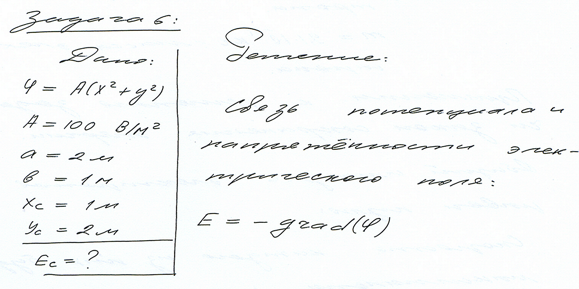 Задача 6:
Дано:
φ = A(x² + y²)
A = 100 В/м²
a = 2 м
в = 1 м
Xc = 1 м
Yc = 2 м
Ec = ?
Решение:
Связь потенциала и
напряжённости элек-
трического поля:
E = - grad(φ)